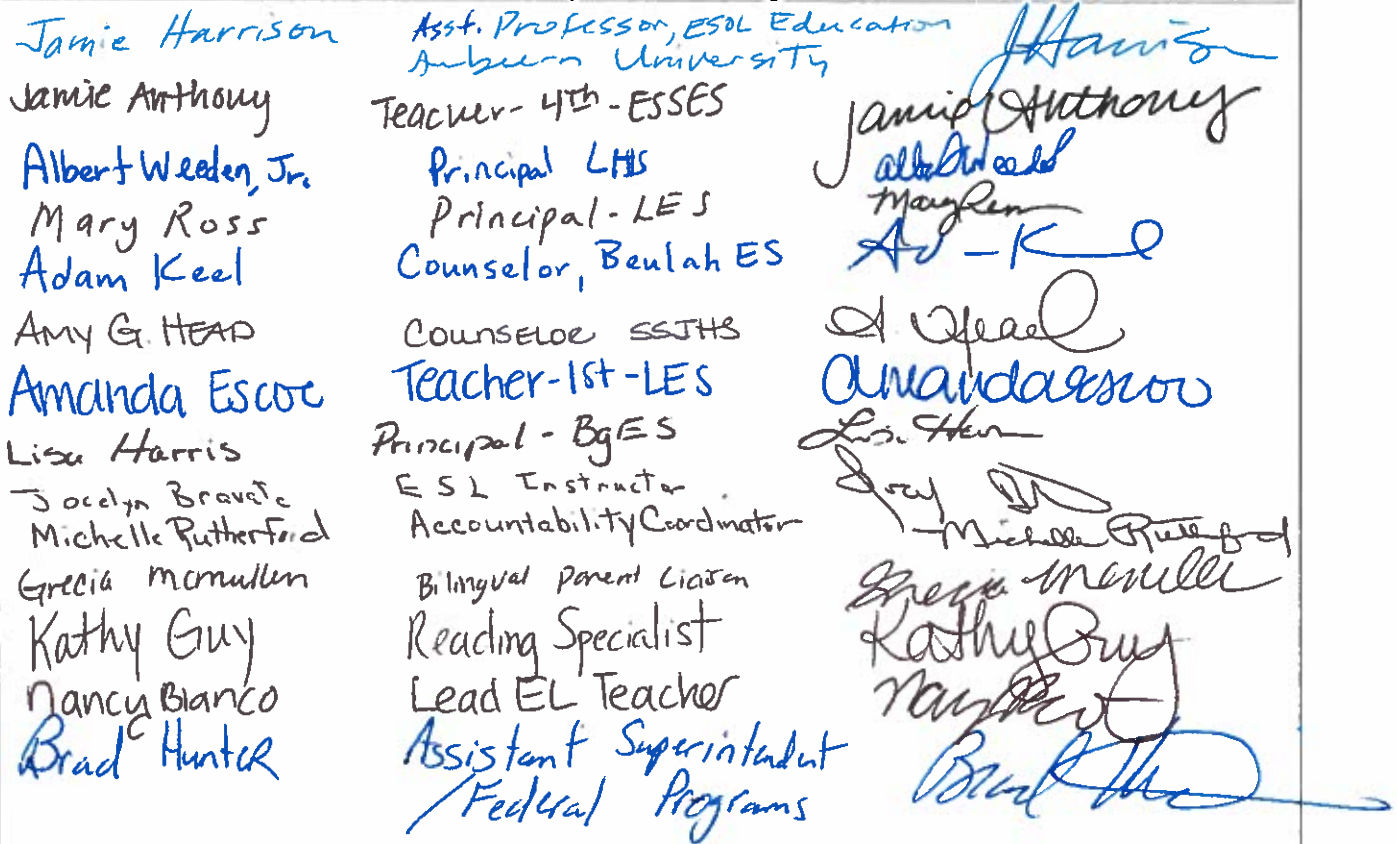 Jamie Harrison Asst. Professor, ESOL Education JHarrison
Auburn University
Jamie Anthony Teacher- 4th - ESSES Jamie Anthony
Albert Weeden, Jr. Principal LHS
Mary Ross Principal - LES
Adam Keel Counselor, Beulah ES
Amy G. Head Counselor SSJHS
Amanda Escoe Teacher-1st-LES amandaescoe
Lisa Harris Principal - BgES
Jocelyn ESL Instructor
Michelle Rutherford Accountability Coordinator Michelle Rutherford
Grecia Mcmullen Bilingual Parent Liaison
Kathy Guy Reading Specialist Kathy Guy
Nancy Blanco Lead EL Teacher
Brad Hunter Assistant Superintendent
/Federal Programs